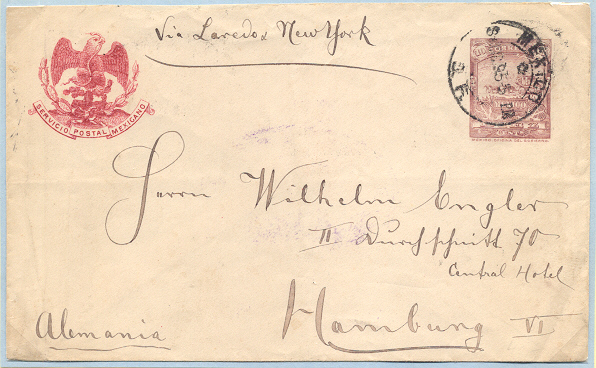 Via Laredo & New York
SERVICIO POSTAL MEXICANO
MEXICO
Herrn Wilhelm Engler
II Durchschnitt 70
Central Hotel
Hamburg VI
Alemania